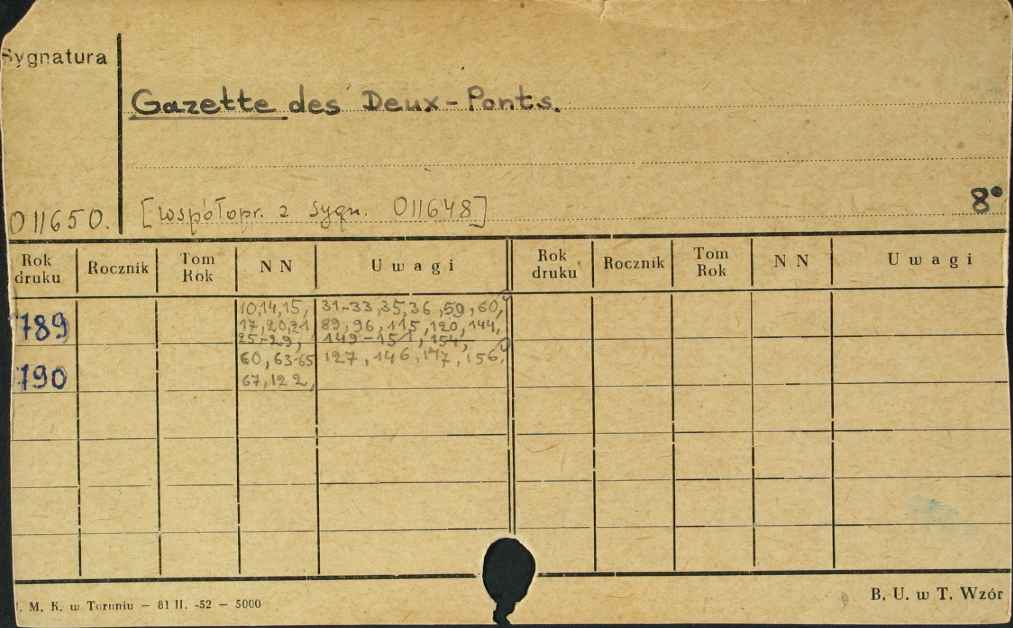 Sygnatura
Gazette des Deux-Ponts.
011650. [współopr. z sygn. 011648] 8°
Rok druku Rocznik Tom Rok N N Uwagi Rok druku Rocznik Tom Rok N N Uwagi
789 10,14,15, 31-33,35,36,59,60,
17,20,21 89,96,115,120,144,
25-29, 149-151,154,
790 60,63-65 127,146,147,156,
67,122,
. M. K. w Toruniu — 81 II. -52 — 5000
B. U. w T. Wzór